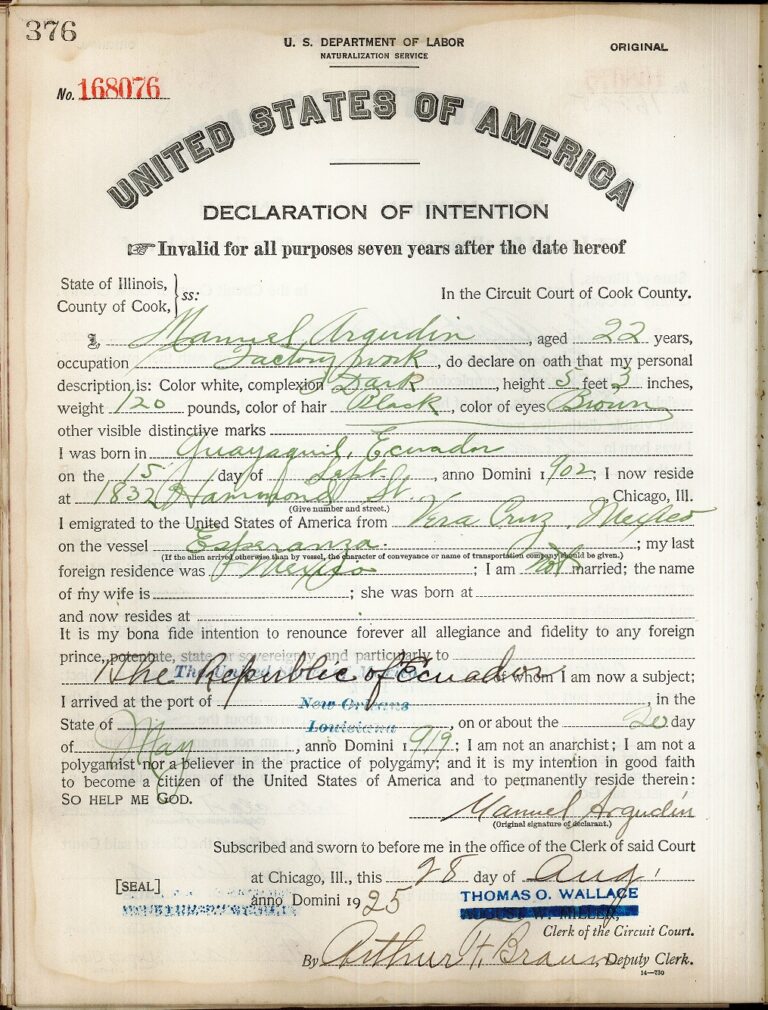 376
U. S. DEPARTMENT OF LABOR
NATURALIZATION SERVICE
ORIGINAL
No. 168076
UNITED STATES OF AMERICA
DECLARATION OF INTENTION
☞ Invalid for all purposes seven years after the date hereof
State of Illinois,
County of Cook, } ss:
In the Circuit Court of Cook County.
I, Manuel Argudin, aged 22 years,
occupation Factory work, do declare on oath that my personal
description is: Color white, complexion Dark, height 5 feet 3 inches,
weight 120 pounds, color of hair Black, color of eyes Brown
other visible distinctive marks
I was born in Guayaquil, Ecuador
on the 15 day of Sept., anno Domini 1902; I now reside
at 1832 Hammond St., Chicago, Ill.
(Give number and street.)
I emigrated to the United States of America from Vera Cruz, Mexico
on the vessel Esperanza; my last
(If the alien arrived otherwise than by vessel, the character of conveyance or name of transportation company should be given.)
foreign residence was Mexico; I am not married; the name
of my wife is ; she was born at
and now resides at .
It is my bona fide intention to renounce forever all allegiance and fidelity to any foreign
prince, potentate, state or sovereignty, and particularly to
The Republic of Ecuador of whom I am now a subject;
I arrived at the port of New Orleans, in the
State of Louisiana, on or about the 20 day
of May, anno Domini 1919; I am not an anarchist; I am not a
polygamist nor a believer in the practice of polygamy; and it is my intention in good faith
to become a citizen of the United States of America and to permanently reside therein:
SO HELP ME GOD.
Manuel Argudin
(Original signature of declarant.)
Subscribed and sworn to before me in the office of the Clerk of said Court
at Chicago, Ill., this 28 day of Aug.
[SEAL]
anno Domini 1925
THOMAS O. WALLACE
AUGUST W. MILLER,
Clerk of the Circuit Court.
By Arthur H. Braun, Deputy Clerk.
14—730